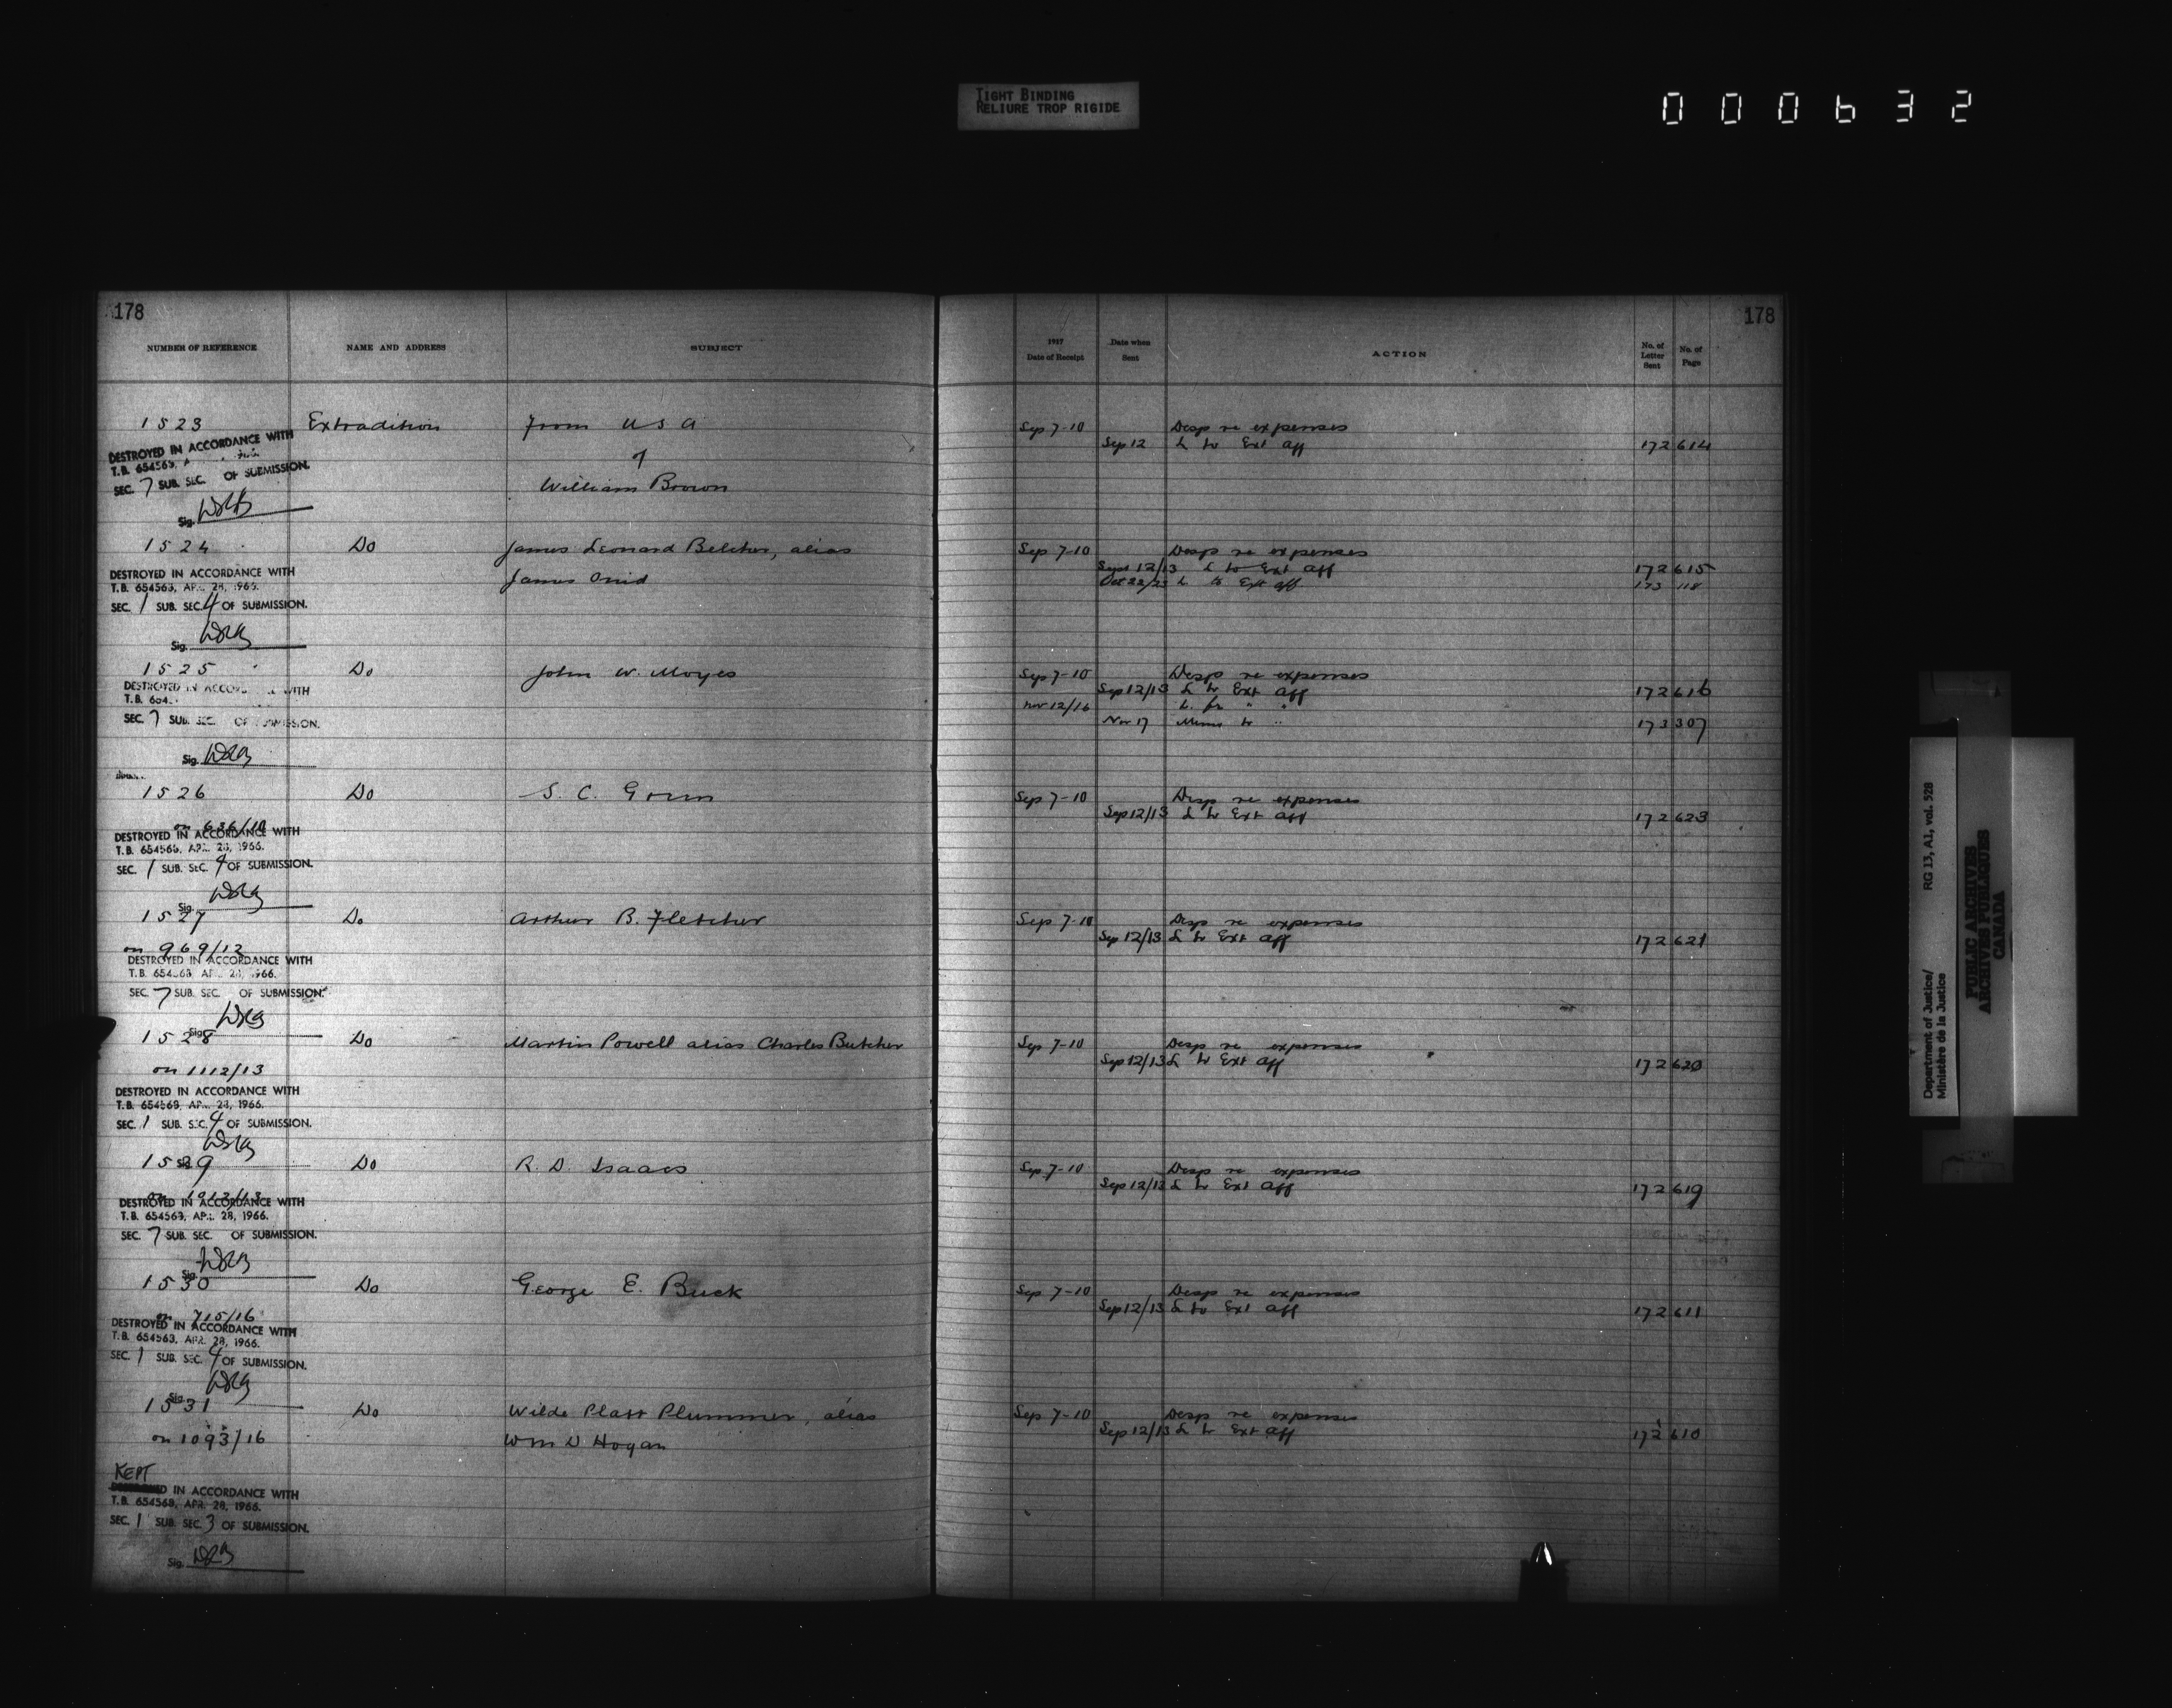 TIGHT BINDING
RELIURE TROP RIGIDE
000632
178
178
NUMBER OF REFERENCE NAME AND ADDRESS SUBJECT 1917 Date of Receipt Date when Sent ACTION No. of Letter Sent No. of Page
1523 Extradition From U S A Sep 7-10 Desp re expenses
Sep 12 L to Ext Aff 172 614
of
William Brown
DESTROYED IN ACCORDANCE WITH
T.B. 654563,
SEC. 7 SUB. SEC. OF SUBMISSION.
Sig.
1524 Do James Leonard Belcher, alias Sep 7-10 Desp re expenses
Sept 12/13 L to Ext Aff 172 615
James Oxnid Oct 22/23 L to Ext Aff 173 118
DESTROYED IN ACCORDANCE WITH
T.B. 654563, APR. 28, 1966.
SEC. 1 SUB. SEC. 4 OF SUBMISSION.
Sig.
1525 Do John W. Moyes Sep 7-10 Desp re expenses
Sep 12/13 L to Ext Aff 172 616
Nov 12/16 L. fr " "
Nov 17 Memo to " 173 307
DESTROYED IN ACCORDANCE WITH
T.B. 654
SEC. 7 SUB. SEC. OF SUBMISSION.
Sig.
1526 Do S. C. Sep 7-10 Desp re expenses
Sep 12/13 L to Ext Aff 172 623
on 636/10
DESTROYED IN ACCORDANCE WITH
T.B. 654563, APR. 28, 1966.
SEC. 1 SUB. SEC. 4 OF SUBMISSION.
Sig.
1527 Do Arthur B. Fletcher Sep 7-10 Desp re expenses
Sep 12/13 L to Ext Aff 172 621
on 969/12
DESTROYED IN ACCORDANCE WITH
T.B. 654563, APR. 28, 1966.
SEC. 7 SUB. SEC. OF SUBMISSION.
Sig.
1528 Do Martin Powell alias Charles Butcher Sep 7-10 Desp re expenses
Sep 12/13 L to Ext Aff 172 620
on 1112/13
DESTROYED IN ACCORDANCE WITH
T.B. 654563, APR. 28, 1966.
SEC. 1 SUB. SEC. 4 OF SUBMISSION.
Sig.
1529 Do R. D. Isaacs Sep 7-10 Desp re expenses
Sep 12/13 L to Ext Aff 172 619
on 1913/13
DESTROYED IN ACCORDANCE WITH
T.B. 654563, APR. 28, 1966.
SEC. 7 SUB. SEC. OF SUBMISSION.
Sig.
1530 Do George E. Buck Sep 7-10 Desp re expenses
Sep 12/13 L to Ext Aff 172 611
on 715/16
DESTROYED IN ACCORDANCE WITH
T.B. 654563, APR. 28, 1966.
SEC. 1 SUB. SEC. 4 OF SUBMISSION.
Sig.
1531 Do Wilde Platt Plummer, alias Sep 7-10 Desp re expenses
Sep 12/13 L to Ext Aff 172 610
on 1093/16 Wm D Hogan
KEPT
IN ACCORDANCE WITH
T.B. 654563, APR. 28, 1966.
SEC. 1 SUB. SEC. 3 OF SUBMISSION.
Sig.
Department of Justice/ RG 13, A1, vol. 528
Ministère de la Justice
PUBLIC ARCHIVES
ARCHIVES PUBLIQUES
CANADA